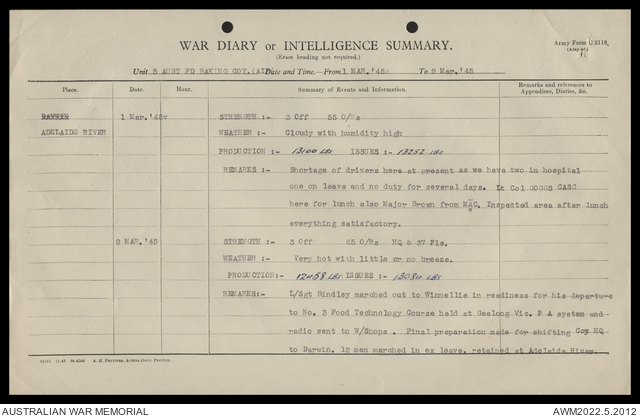 WAR DIARY or INTELLIGENCE SUMMARY.
(Erase heading not required.)
Army Form C.2118,
Unit 5 AUST FD BAKING COY. (AIF) Date and Time.—From 1 MAR.'45 To 2 Mar.'45
Place. Date. Hour. Summary of Events and Information. Remarks and references to Appendices, Diaries, &c.
DARWIN 1 Mar.'45 STRENGTH :- 3 Off 85 O/Rs
ADELAIDE RIVER WEATHER :- Cloudy with humidity high
PRODUCTION :- 13100 LBS ISSUES :- 13252 LBS
REMARKS :- Shortage of drivers here at present as we have two in hospital
one on leave and no duty for several days. Lt Col GOGGS CASC
here for lunch also Major Brown from MAC. Inspected area after lunch
everything satisfactory.
2 MAR.'45 STRENGTH :- 3 Off 85 O/Rs HQ & 37 Pls.
WEATHER :- Very hot with little or no breeze.
PRODUCTION:- 12458 LBS ISSUES :- 13084 LBS
REMARKS:- L/Sgt Bindley marched out to Winnellie in readiness for his departure
to No. 3 Food Technology Course held at Geelong Vic. P A system and
radio sent to W/Shops . Final preparation made for shifting Coy HQ
to Darwin. 12 men marched in ex leave, retained at Adelaide River.
A. H. PETTIFER, ACTING GOVT. PRINTER.
AUSTRALIAN WAR MEMORIAL
AWM2022.5.2012